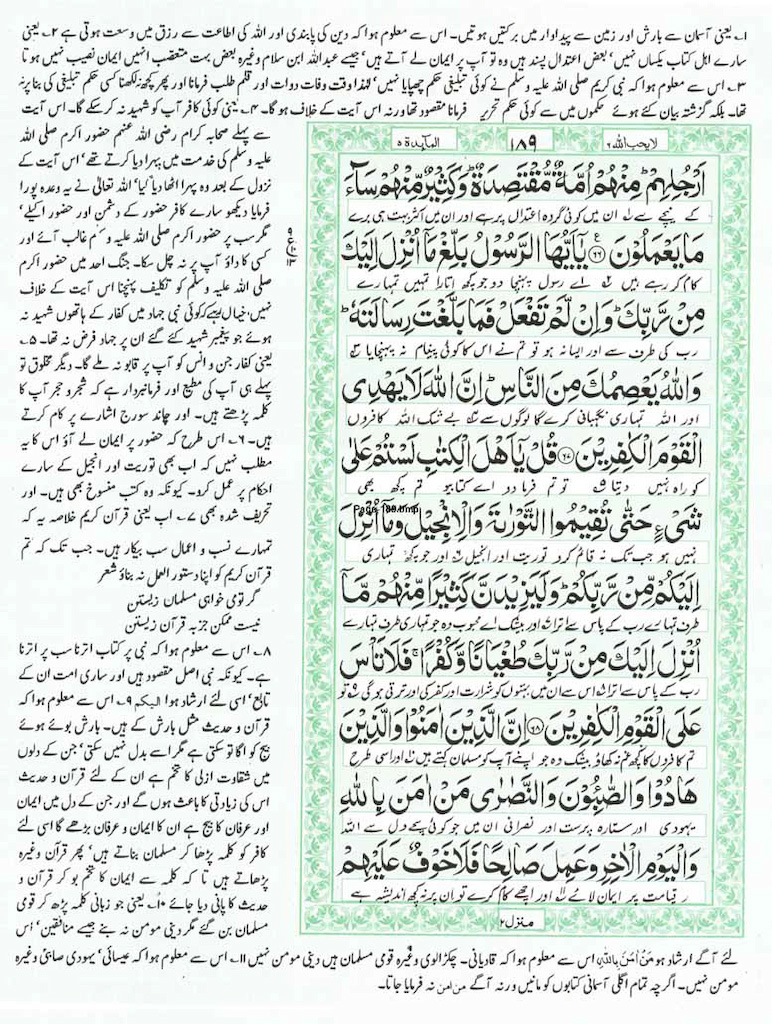 ۱۔ یعنی آسمان سے بارش اور زمین سے پیداوار میں برکتیں ہوتیں۔ اس سے معلوم ہوا کہ دین کی پابندی اور اللہ کی اطاعت سے رزق میں وسعت ہوتی ہے ۲۔ یعنی
سارے اہل کتاب یکساں نہیں' بعض اعتدال پسند ہیں وہ تو آپ پر ایمان لے آتے ہیں' جیسے عبداللہ ابن سلام وغیرہ بعض بہت متعصب انہیں ایمان نصیب نہیں ہوتا
۳۔ اس سے معلوم ہوا کہ نبی کریم صلی اللہ علیہ وسلم نے کوئی تبلیغی حکم چھپایا نہیں' لہٰذا وقت وفات دوات اور قلم طلب فرمانا اور پھر کچھ نہ لکھنا کسی حکم تبلیغی کی بنا پر نہ
تھا۔ بلکہ گزشتہ بیان کئے ہوئے حکموں میں سے کوئی حکم تحریر فرمانا مقصود تھا ورنہ اس آیت کے خلاف ہو گا۔ ۴۔ یعنی کوئی کافر آپ کو شہید نہ کر سکے گا۔ اس آیت
سے پہلے صحابہ کرام رضی اللہ عنہم حضور اکرم صلی اللہ
علیہ وسلم کی خدمت میں پہرا دیا کرتے تھے' اس آیت کے
نزول کے بعد وہ پہرا اٹھا دیا گیا' اللہ تعالیٰ نے یہ وعدہ پورا
فرمایا دیکھو سارے کافر حضور کے دشمن اور حضور اکیلے'
مگر سب پر حضور اکرم صلی اللہ علیہ وسلم غالب آئے اور
کسی کا داؤ آپ پر نہ چل سکا۔ جنگ احد میں حضور اکرم
صلی اللہ علیہ وسلم کو تکلیف پہنچنا اس آیت کے خلاف
نہیں' خیال رہے کہ کوئی نبی جہاد میں کفار کے ہاتھوں شہید نہ
ہوئے جو پیغمبر شہید کئے گئے ان پر جہاد فرض نہ تھا۔ ۵۔
یعنی کفار جن و انس کو آپ پر قابو نہ ملے گا۔ دیگر مخلوق تو
پہلے ہی آپ کی مطیع اور فرمانبردار ہے کہ شجر و حجر آپ کا
کلمہ پڑھتے ہیں۔ اور چاند سورج اشارے پر کام کرتے
ہیں۔ ۶۔ اس طرح کہ حضور پر ایمان لے آؤ اس کا یہ
مطلب نہیں کہ اب بھی توریت اور انجیل کے سارے
احکام پر عمل کرو۔ کیونکہ وہ کتب منسوخ بھی ہیں۔ اور
تحریف شدہ بھی ۷۔ اب یعنی قرآن کریم خلاصہ یہ کہ
تمہارے نسب و اعمال سب بیکار ہیں۔ جب تک کہ تم
قرآن کریم کو اپنا دستور العمل نہ بناؤ شعر
گر تومی خواہی مسلماں زیستن
نیست ممکن جز بہ قرآن زیستن
۸۔ اس سے معلوم ہوا کہ نبی پر کتاب اترنا سب پر اترنا
ہے۔ کیونکہ نبی اصل مقصود ہیں اور ساری امت ان کے
تابع' اسی لئے ارشاد ہوا الیکم ۹۔ اس سے معلوم ہوا کہ
قرآن و حدیث مثل بارش کے ہیں۔ بارش بوئے ہوئے
بیج کو اگا تو سکتی ہے مگر اسے بدل نہیں سکتی' جن کے دلوں
میں شقاوت ازلی کا تخم ہے ان کے لئے قرآن و حدیث
اس کی زیادتی کا باعث ہوں گے اور جن کے دل میں ایمان
اور عرفان کا بیج ہے ان کا ایمان و عرفان بڑھے گا اسی لئے
کافر کو کلمہ پڑھا کر مسلمان بناتے ہیں' پھر قرآن وغیرہ
پڑھاتے ہیں تا کہ کلمہ سے ایمان کا تخم بو کر قرآن و
حدیث کا پانی دیا جائے ۱۰۔ یعنی جو زبانی کلمہ پڑھ کر قومی
مسلمان بن گئے مگر دینی مومن نہ بنے جیسے منافقین' اس
لایحب اللہ ۶
۱۸۹
المآیدۃ ۵
اَرْجُلِهِمْ ؕ مِنْهُمْ اُمَّةٌ مُّقْتَصِدَةٌ ؕ وَكَثِیْرٌ مِّنْهُمْ سَآءَ
کے نیچے سے ان میں کوئی گروہ اعتدال پر ہے اور ان میں اکثر بہت ہی برے
مَا یَعْمَلُوْنَ ۶۶ یٰۤاَیُّهَا الرَّسُوْلُ بَلِّغْ مَاۤ اُنْزِلَ اِلَیْكَ
کام کر رہے ہیں اے رسول پہنچا دو جو کچھ اتارا تمہیں تمہارے
مِنْ رَّبِّكَ ؕ وَاِنْ لَّمْ تَفْعَلْ فَمَا بَلَّغْتَ رِسَالَتَهٗ ؕ
رب کی طرف سے اور ایسا نہ ہو تو تم نے اس کا کوئی پیغام نہ پہنچایا
وَاللّٰهُ یَعْصِمُكَ مِنَ النَّاسِ ؕ اِنَّ اللّٰهَ لَا یَهْدِی
اور اللہ تمہاری نگہبانی کرے گا لوگوں سے بے شک اللہ کافروں
الْقَوْمَ الْكٰفِرِیْنَ ۶۷ قُلْ یٰۤاَهْلَ الْكِتٰبِ لَسْتُمْ عَلٰی
کو راہ نہیں دیتا تم فرما دو اے کتابیو تم کچھ بھی
شَیْءٍ حَتّٰی تُقِیْمُوا التَّوْرٰىةَ وَالْاِنْجِیْلَ وَمَاۤ اُنْزِلَ
Page-189.bmp
نہیں ہو جب تک نہ قائم کرو توریت اور انجیل اور جو کچھ تمہاری
اِلَیْكُمْ مِّنْ رَّبِّكُمْ ؕ وَلَیَزِیْدَنَّ كَثِیْرًا مِّنْهُمْ مَّاۤ
طرف تمہارے رب کے پاس سے اترا اور بیشک اے محبوب وہ جو تمہاری طرف تمہارے
اُنْزِلَ اِلَیْكَ مِنْ رَّبِّكَ طُغْیَانًا وَّكُفْرًا ۚ فَلَا تَاْسَ
رب کے پاس سے اترا اس سے ان میں بہتوں کو شرارت اور کفر کی اور ترقی ہوگی تو
عَلَی الْقَوْمِ الْكٰفِرِیْنَ ۶۸ اِنَّ الَّذِیْنَ اٰمَنُوْا وَالَّذِیْنَ
تم کافروں کا کچھ غم نہ کھاؤ بیشک وہ جو اپنے آپ کو مسلمان کہتے ہیں اور اسی طرح
هَادُوْا وَالصّٰبِـُٔوْنَ وَالنَّصٰرٰی مَنْ اٰمَنَ بِاللّٰهِ
یہودی اور ستارہ پرست اور نصرانی ان میں جو کوئی سچے دل سے اللہ
وَالْیَوْمِ الْاٰخِرِ وَعَمِلَ صَالِحًا فَلَا خَوْفٌ عَلَیْهِمْ
و قیامت پر ایمان لائے اور اچھے کام کرے تو ان پر نہ کچھ اندیشہ ہے
منزل ۲
لئے آگے ارشاد ہوا مَنْ اٰمَنَ بِاللّٰهِ اس سے معلوم ہوا کہ قادیانی۔ چکڑالوی وغیرہ قومی مسلمان ہیں دینی مومن نہیں ۱۱۔ اس سے معلوم ہوا کہ عیسائی' یہودی صابئی وغیرہ
مومن نہیں۔ اگرچہ تمام اگلی آسمانی کتابوں کو مانیں ورنہ آگے من امن نہ فرمایا جاتا۔